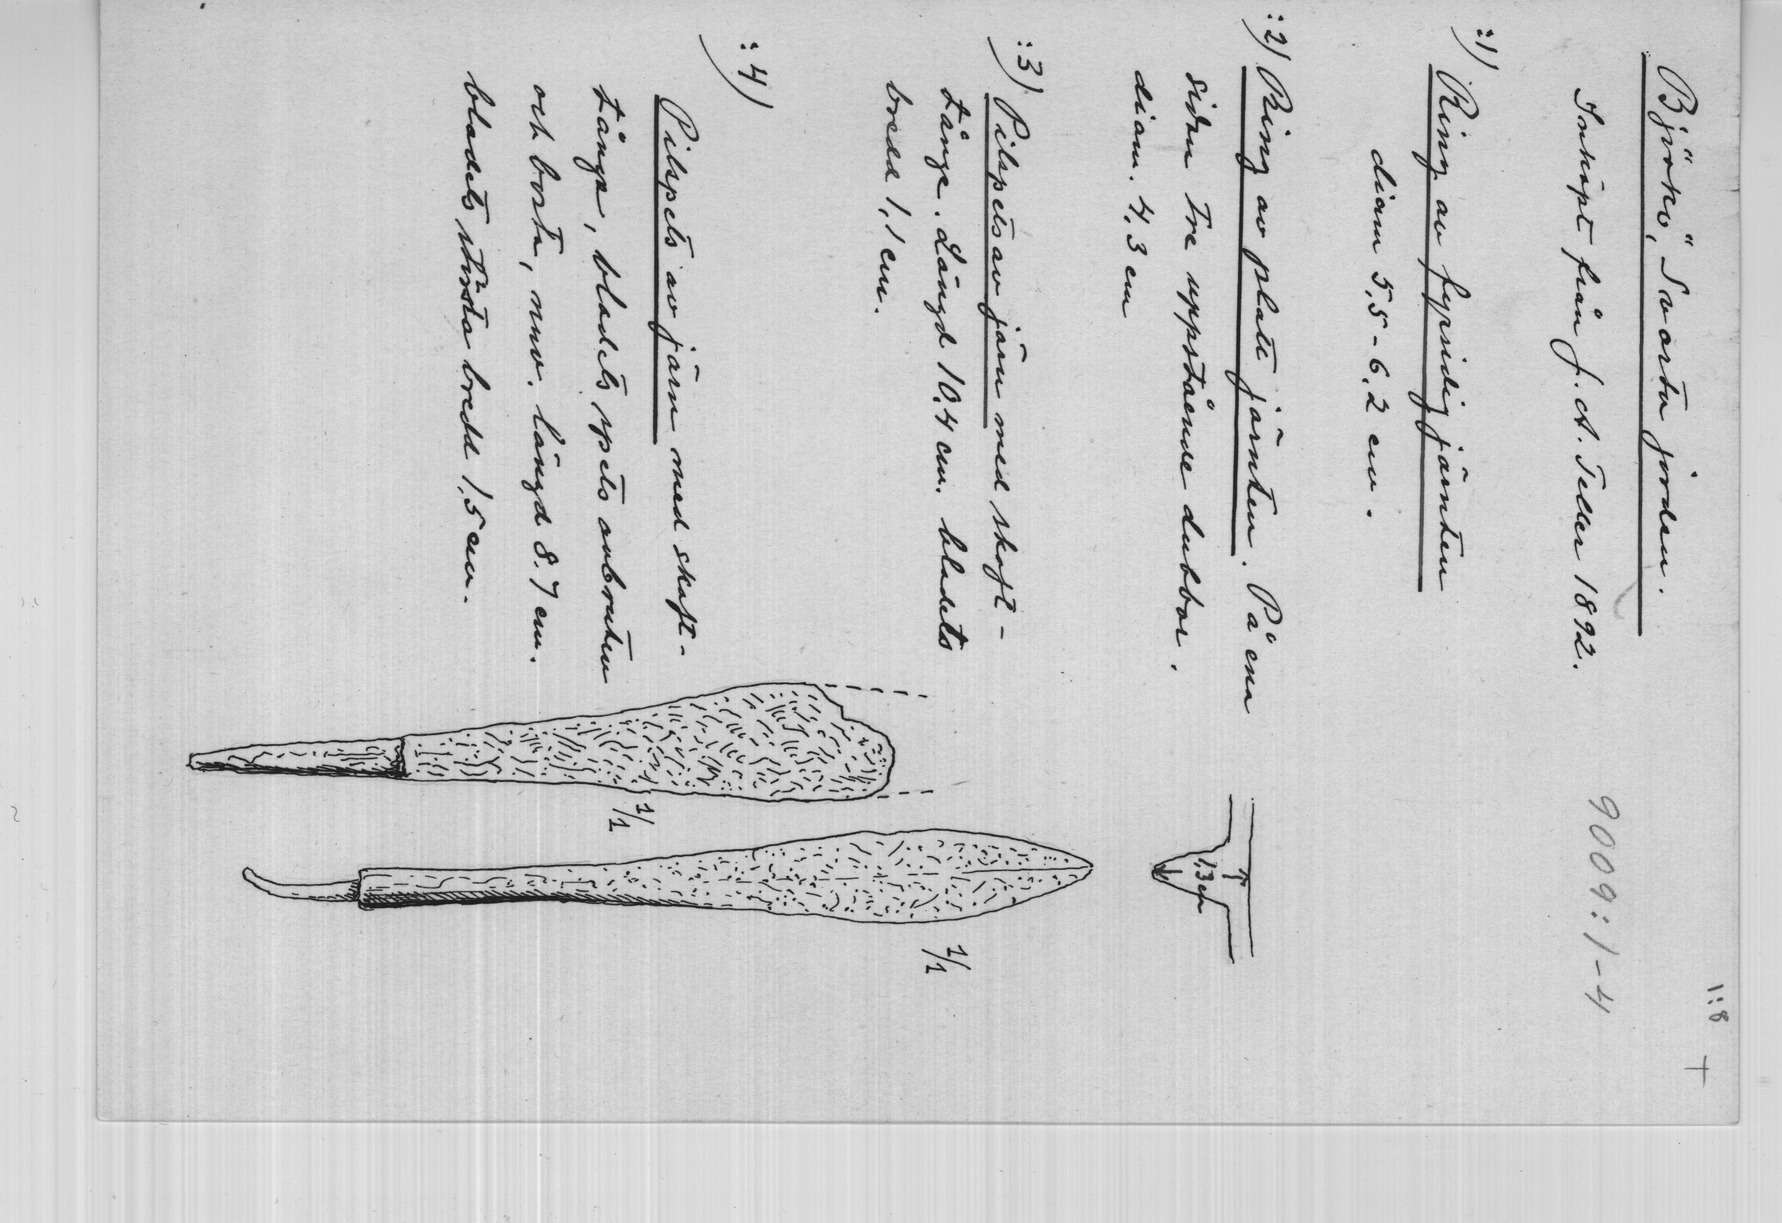 Björkö, "Svarta jorden.
Inköpt från J. A. Teller 1892.
9009:1-4
1:8
:1) Ring av fyrsidig järnten
diam 5,5-6,2 cm.
:2) Ring av platt järnten. På ena
sidan tre uppstående dubbar.
diam. 4,3 cm
1,3 cm
:3) Pilspets av järn med skaft-
tånge. Längd 10,4 cm. bladets
bredd 1,1 cm.
1/1
:4)
Pilspets av järn med skaft-
tånge, bladets spets avbruten
och borta, nuv. längd 8.7 cm.
bladets största bredd 1,5 cm.
1/1